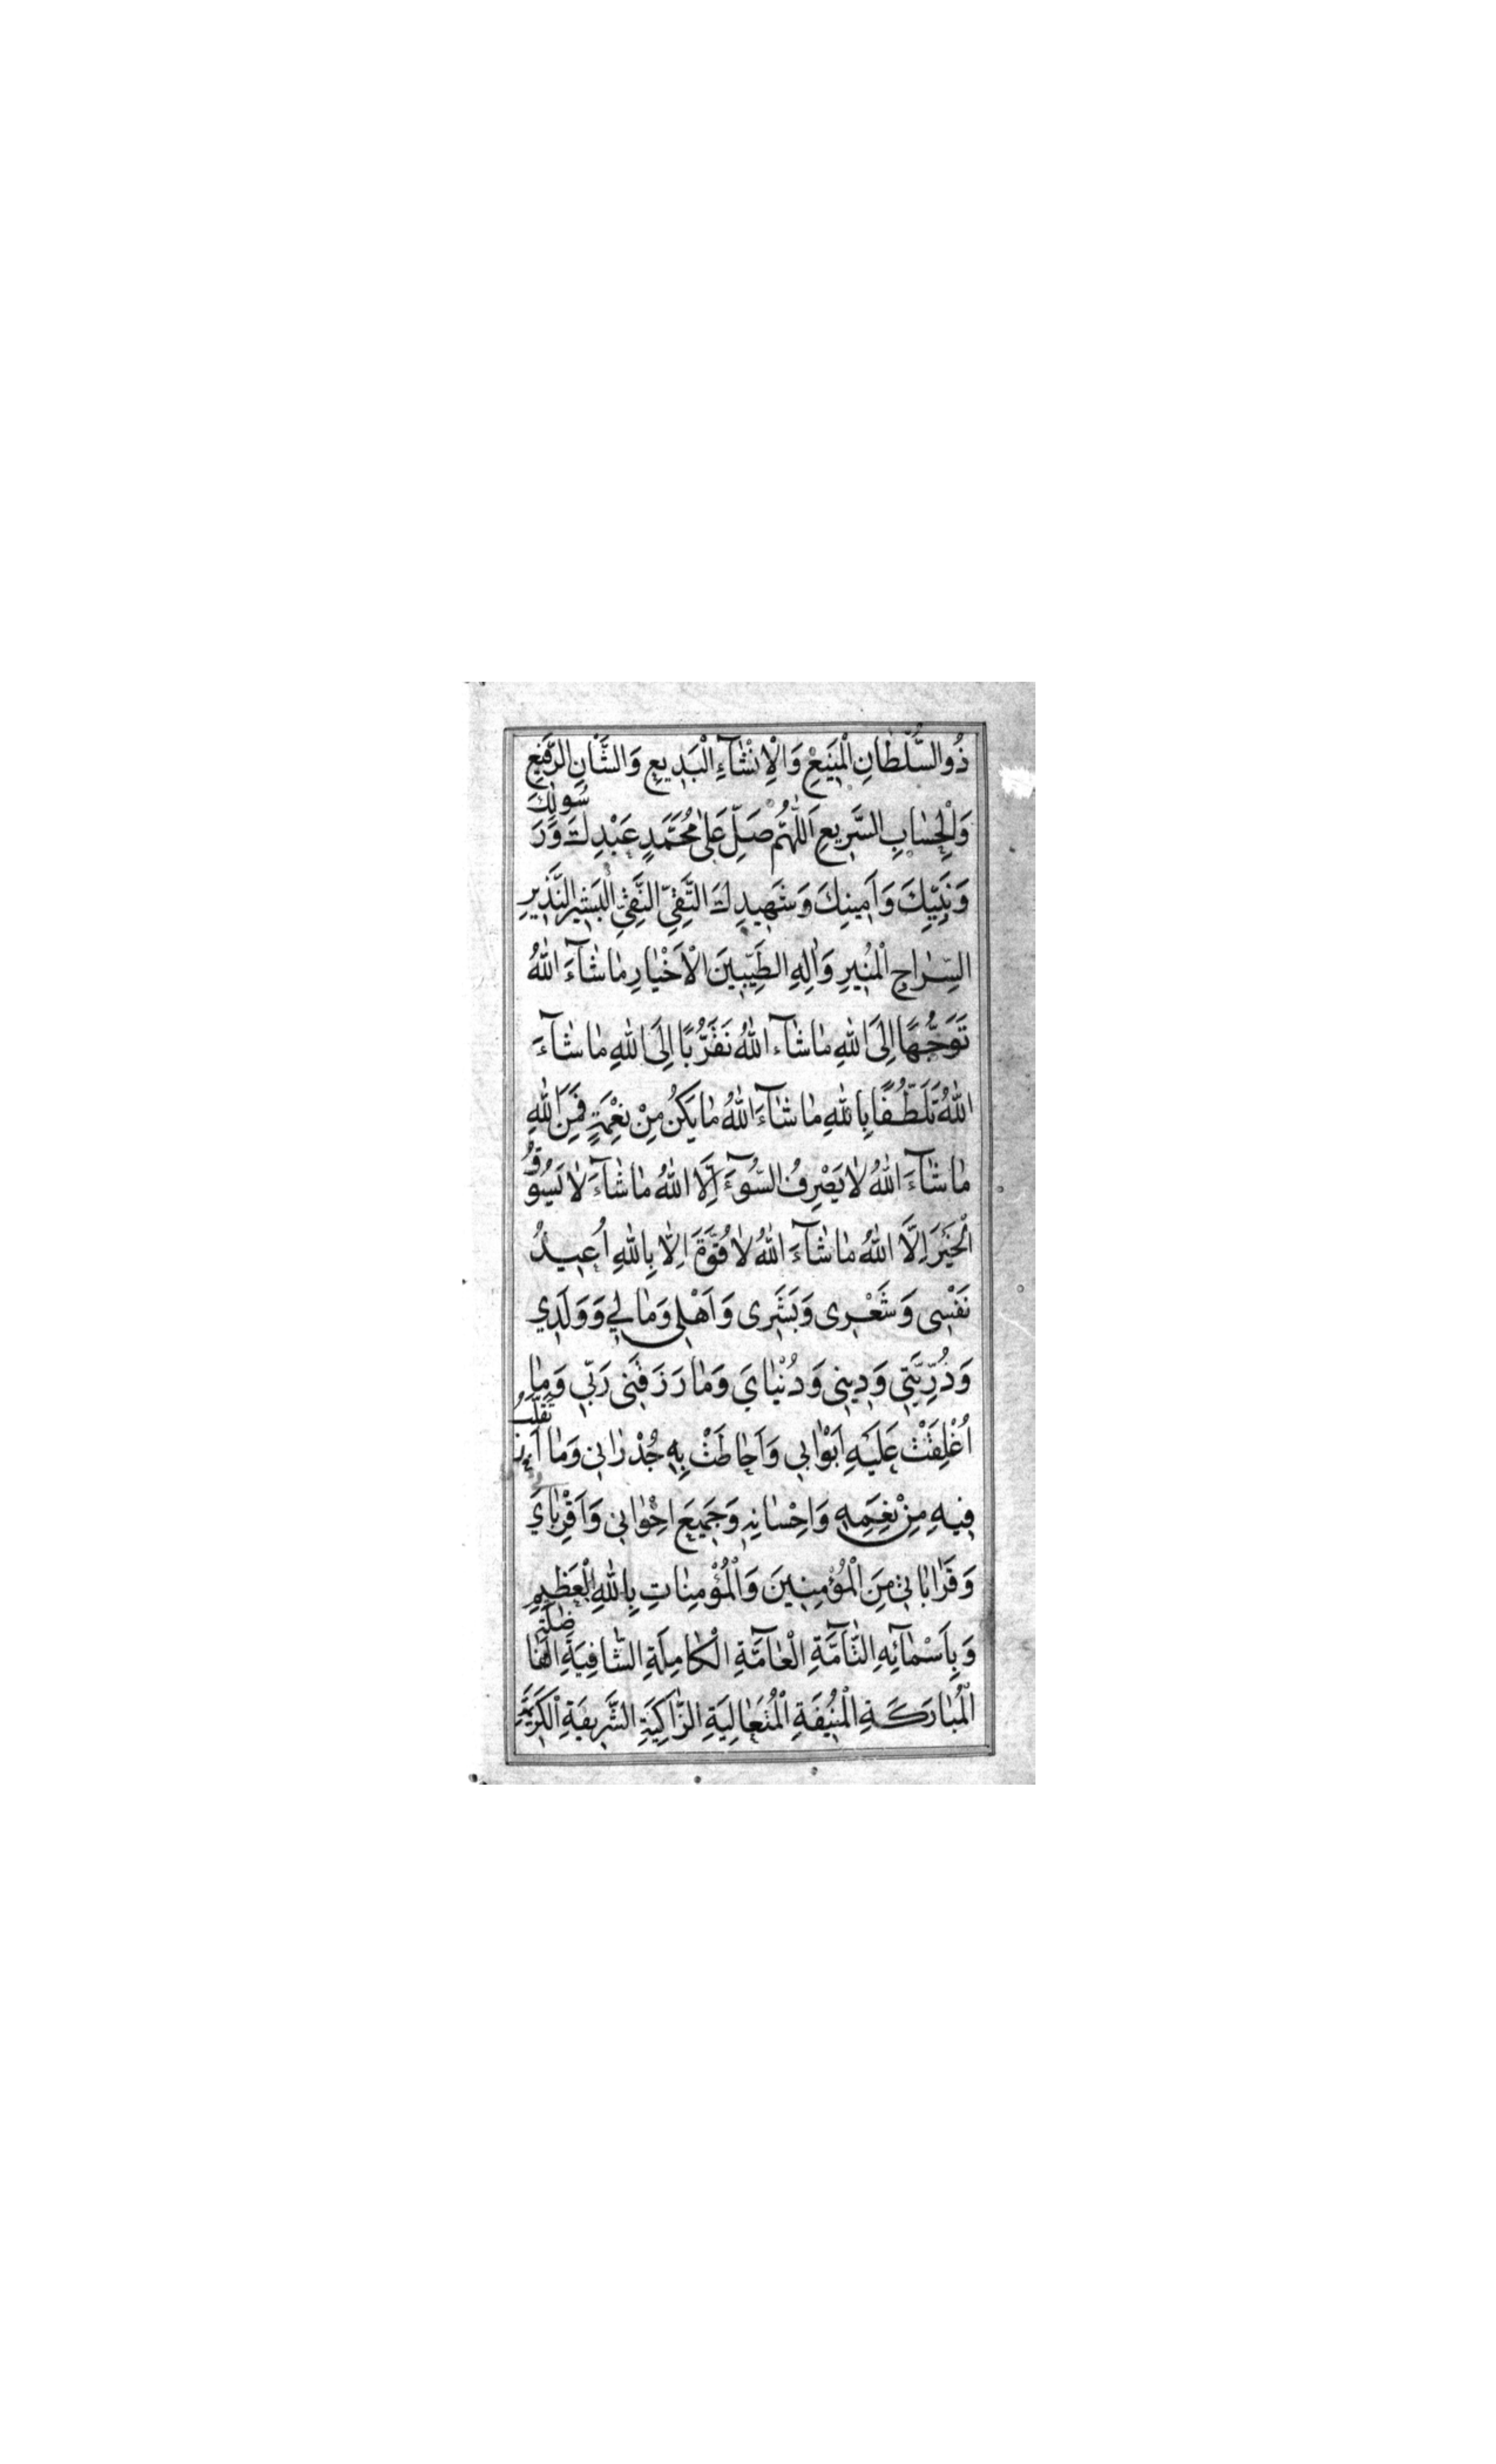 ذُو السُّلْطَانِ الْمَنِيعِ وَالْاِنْشَآءِ الْبَدِيعِ وَالشَّانِ الرَّفِيعِ
وَالْحِسَابِ السَّرِيعِ اَللّٰهُمَّ صَلِّ عَلٰى مُحَمَّدٍ عَبْدِكَ وَرَسُولِكَ
وَنَبِيِّكَ وَاَمِينِكَ وَشَهِيدِكَ التَّقِيِّ النَّقِيِّ الْبَشِيرِ النَّذِيرِ
السِّرَاجِ الْمُنِيرِ وَاٰلِهِ الطَّيِّبِينَ الْاَخْيَارِ مَا شَآءَ اللهُ
تَوَجُّهًا اِلَى اللهِ مَا شَآءَ اللهُ تَقَرُّبًا اِلَى اللهِ مَا شَآءَ
اللهُ تَلَطُّفًا بِاللهِ مَا شَآءَ اللهُ مَا يَكُنْ مِنْ نِعْمَةٍ فَمِنَ اللهِ
مَا شَآءَ اللهُ لَا يَصْرِفُ السُّوٓءَ اِلَّا اللهُ مَا شَآءَ لَا يَسُوقُ
الْخَيْرَ اِلَّا اللهُ مَا شَآءَ اللهُ لَا قُوَّةَ اِلَّا بِاللهِ اُعِيذُ
نَفْسِى وَشَعْرِى وَبَشَرِى وَاَهْلِى وَمَالِي وَوَلَدِي
وَذُرِّيَّتِي وَدِينِى وَدُنْيَايَ وَمَا رَزَقَنِى رَبِّي وَمَا
اُغْلِقَتْ عَلَيْهِ اَبْوَابِي وَاَحَاطَتْ بِهِ جُدْرَانِى وَمَا اَتَقَلَّبُ
فِيهِ مِنْ نِعَمِهِ وَاِحْسَانِهِ وَجَمِيعَ اِخْوَانِى وَاَقْرِبَايَ
وَقَرَابَاتِى مِنَ الْمُؤْمِنِينَ وَالْمُؤْمِنَاتِ بِاللهِ الْعَظِيمِ
وَبِاَسْمَآئِهِ التَّآمَّةِ الْعَآمَّةِ الْكَامِلَةِ الشَّافِيَةِ الْفَاضِلَةِ
الْمُبَارَكَةِ الْمُنِيفَةِ الْمُتَعَالِيَةِ الزَّاكِيَةِ الشَّرِيفَةِ الْكَرِيمَةِ